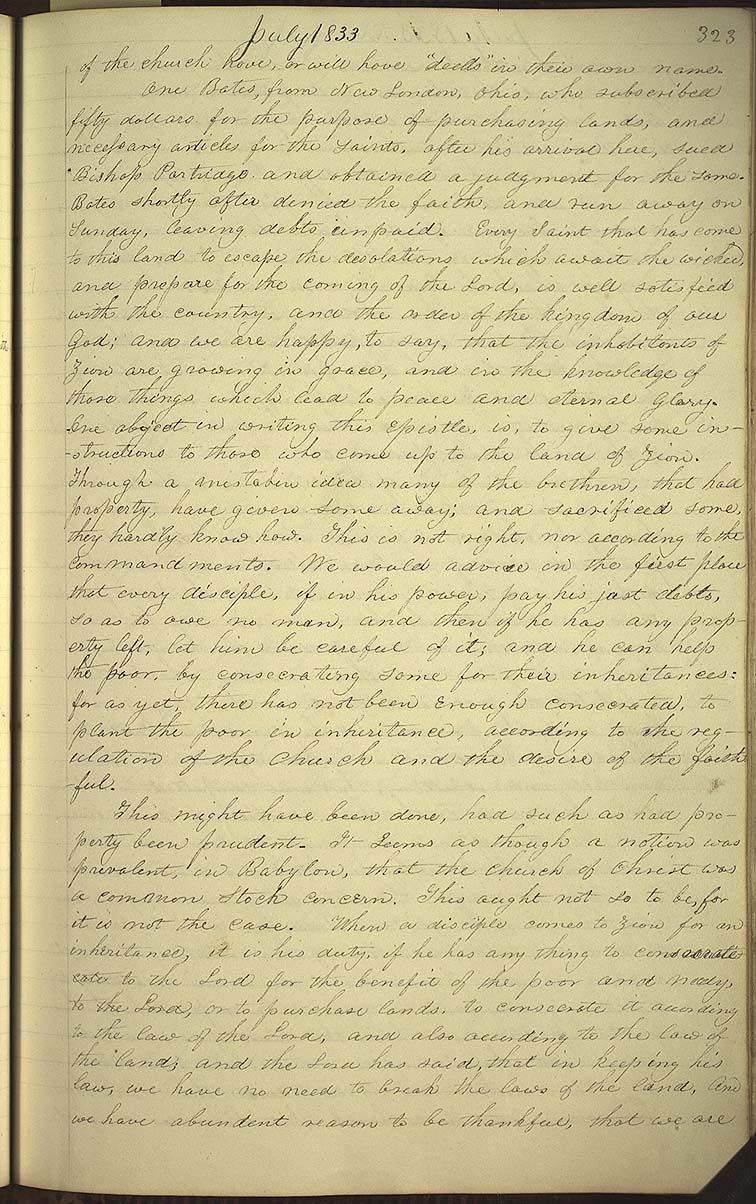 July 1833 323
of the church have, or will have "deeds" in their own name.
One Bates, from New London, Ohio, who subscribed
fifty dollars for the purpose of purchasing lands, and
necessary articles for the saints, after his arrival here, sued
Bishop Partridge and obtained a judgment for the same.
Bates shortly after denied the faith, and run away on
Sunday, leaving debts unpaid. Every Saint that has come
to this land to escape the desolations which await the wicked,
and prepare for the coming of the Lord, is well satisfied
with the country, and the order of the kingdom of our
God; and we are happy, to say, that the inhabitants of
Zion are growing in grace, and in the knowledge of
those things which lead to peace and eternal glory.
One object in writing this epistle, is, to give some in-
-structions to those who come up to the land of Zion.
Through a mistakin idea many of the brethren, that had
property, have given some away; and sacrificed some,
they hardly know how. This is not right, nor according to the
commandments. We would advice in the first place
that every disciple, if in his power, pay his just debts,
so as to owe no man, and then if he has any prop-
erty left, let him be careful of it; and he can help
the poor, by consecrating some for their inheritances:
for as yet, there has not been enough consecrated, to
plant the poor in inheritance, according to the reg-
ulation of the church and the desire of the faith
-ful.
This might have been done, had such as had pro-
perty been prudent. It seems as though a notion was
prevalent, in Babylon, that the church of Christ was
a common stock concern. This aught not so to be, for
it is not the case. When a disciple comes to Zion for an
inheritance, it is his duty, if he has any thing to consecrate
cate to the Lord for the benefit of the poor and nedy,
to the Lord, or to purchase lands, to consecrate it acording
to the law of the Lord, and also according to the law of
the land; and the Lord has said, that in keeping his
law, we have no need to break the laws of the land, And
we have abundent reason to be thankful, that we are